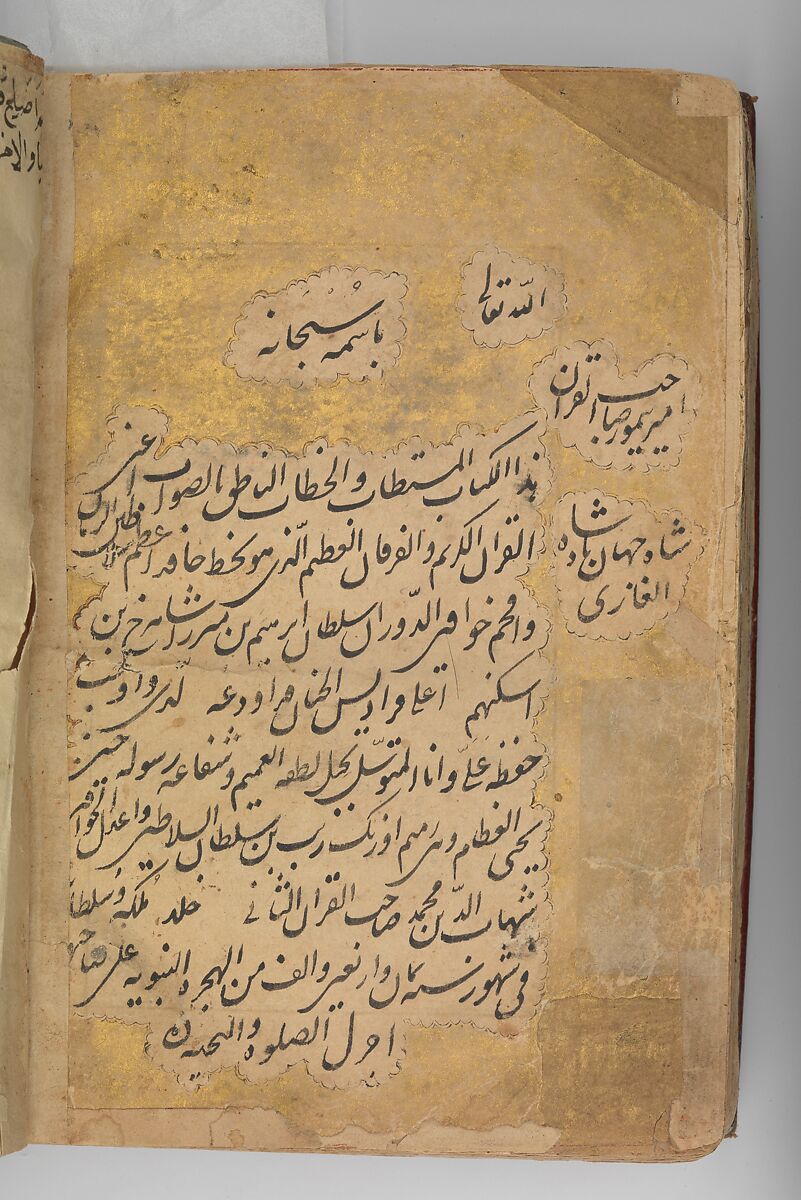 الله تعالی
باسمه سبحانه
امیر تیمور صاحب القران
شاه جهان پادشاه
الغازی
هذا الکتاب المستطاب والخطاب الناطق بالصواب اعنی
القران الکریم والفرقان العظیم الذی هو بخط خاقان اعظم
وافخم خواقین الدوران سلطان ابرهیم بن میرزا شاهرخ بن
اسکنهم تعالی فرادیس الجنان مما اودعه لدی واوجب
حفظه علی وانا المتوسل بحبل لطفه العمیم وشفاعه رسوله حین
یحیی العظام وهی رمیم اورنک زیب بن سلطان السلاطین واعدل الخواقین
شهاب الدین محمد صاحب القران الثانی خلد ملکه وسلطانه
فی شهور سنه ثمان واربعین والف من الهجره النبویه علی صاحبها
اجزل الصلوه والتحیه